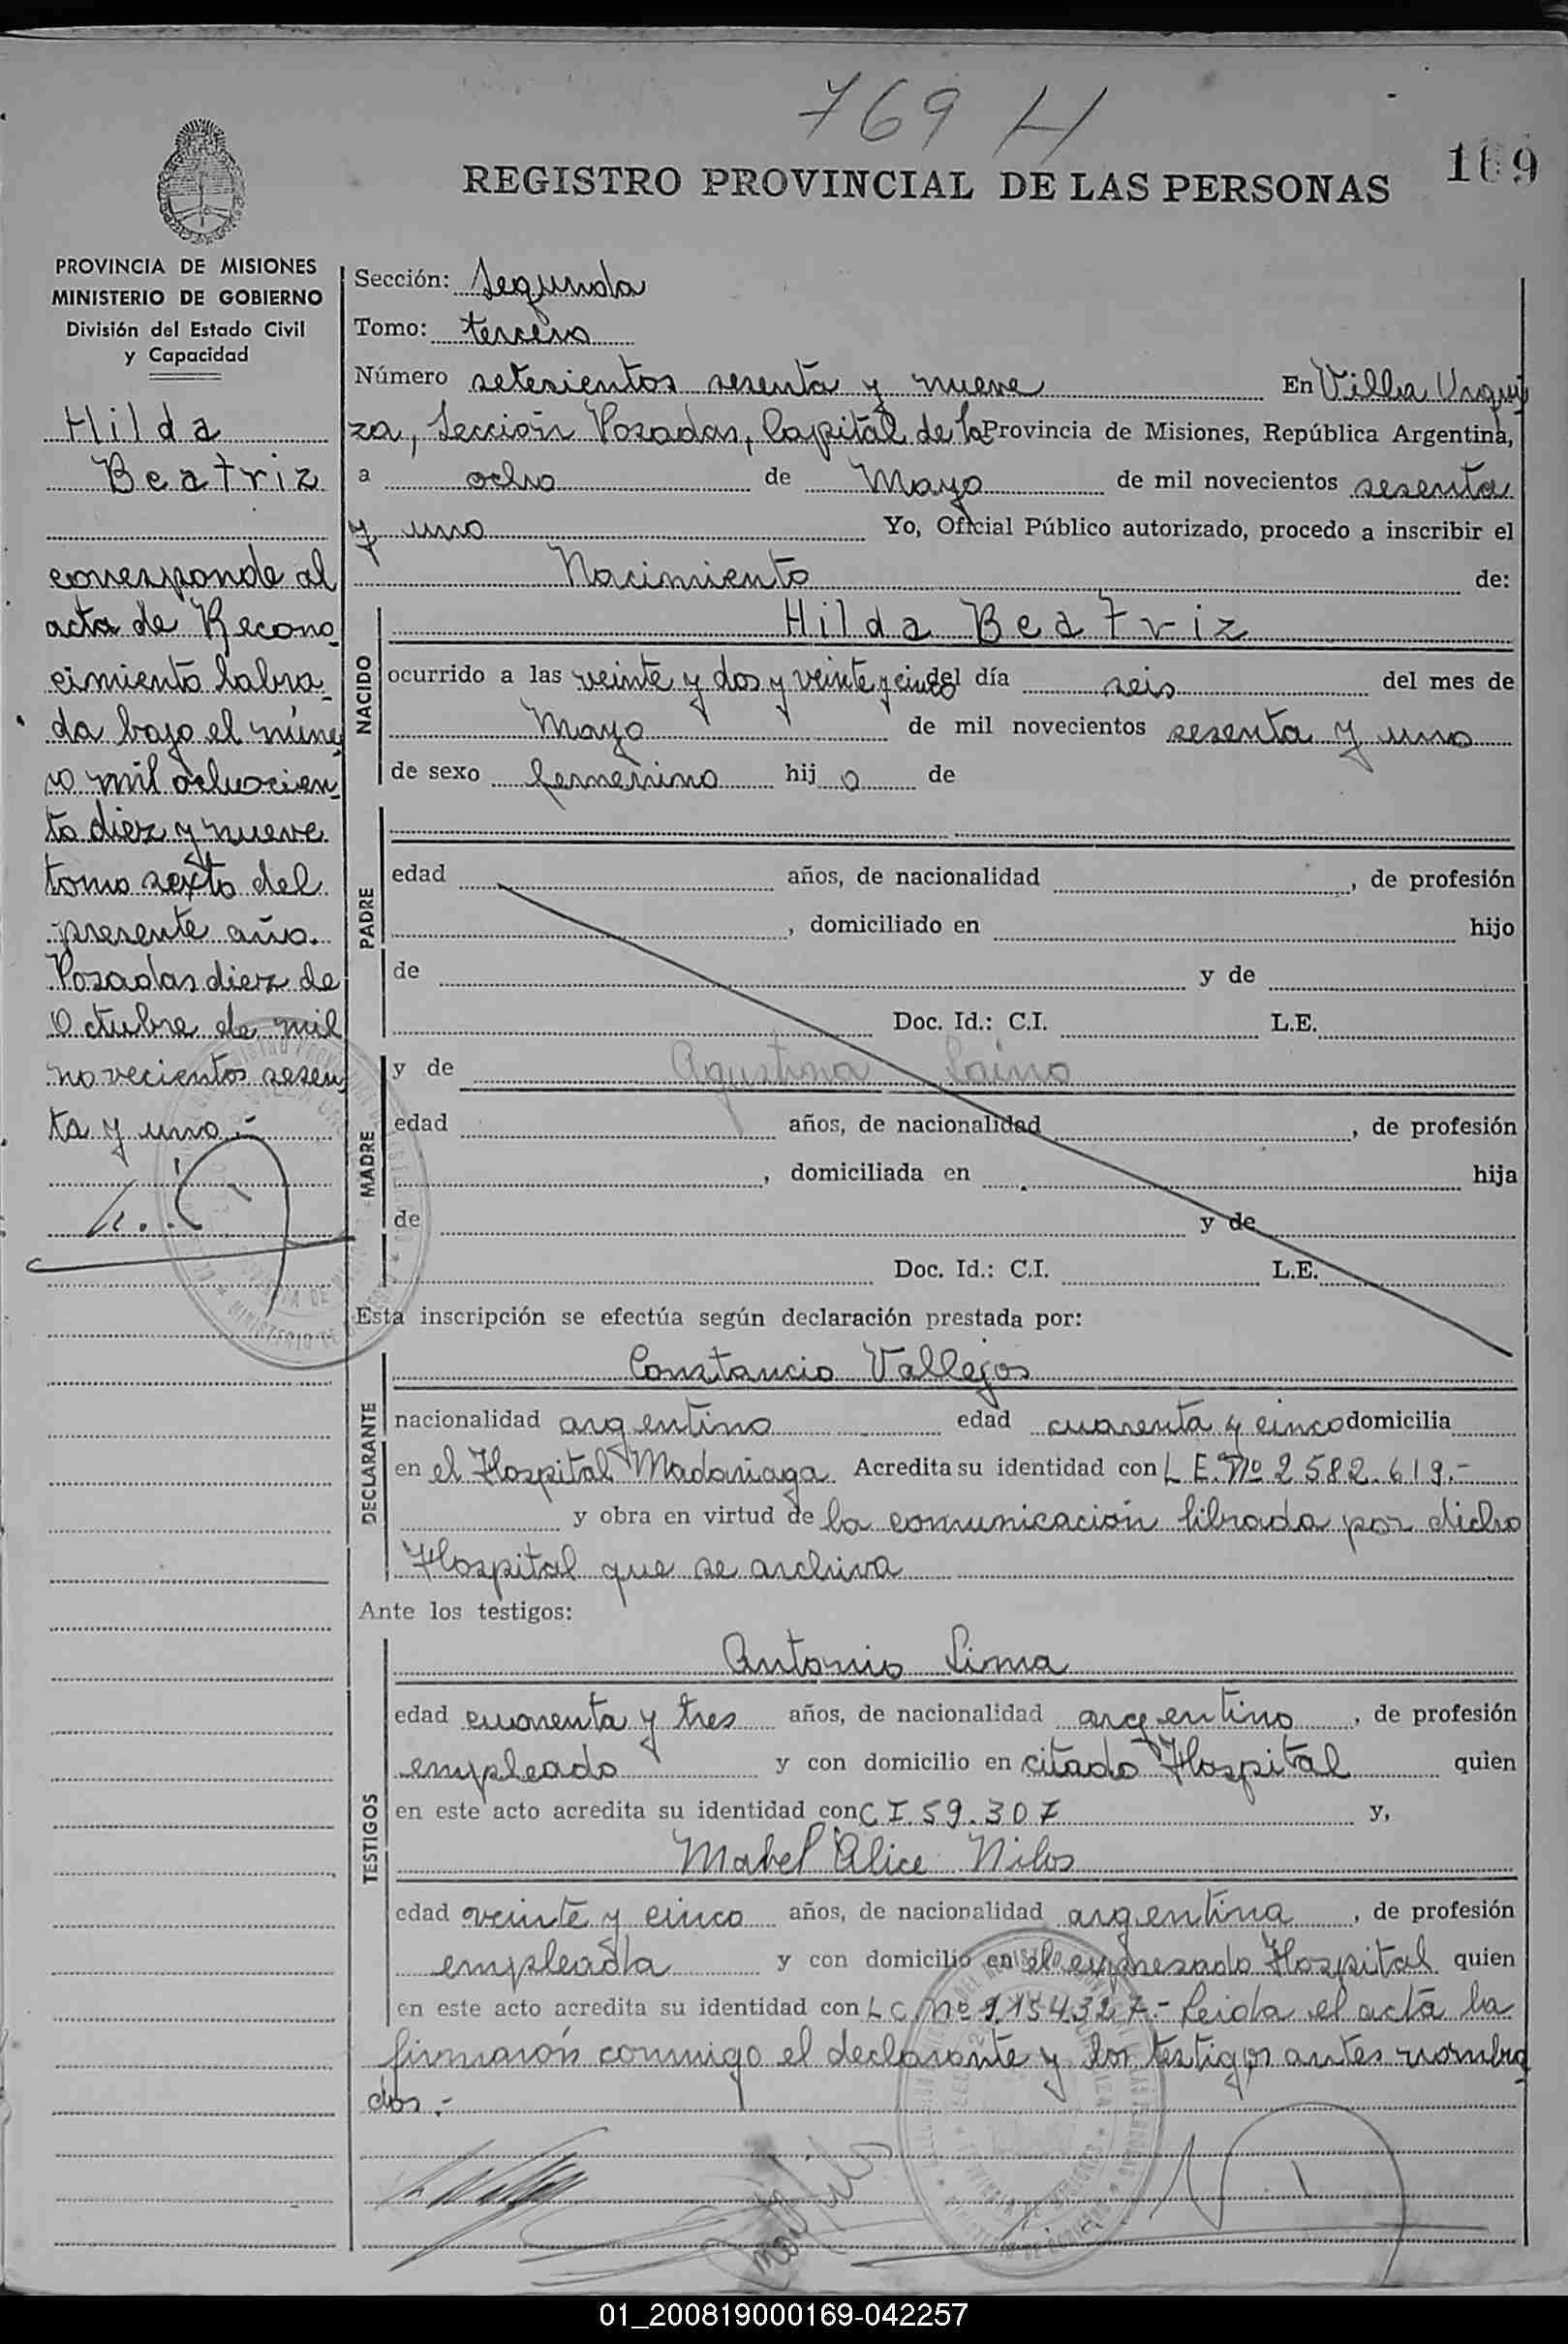 769 H
169
REGISTRO PROVINCIAL DE LAS PERSONAS
PROVINCIA DE MISIONES
MINISTERIO DE GOBIERNO
División del Estado Civil
y Capacidad
Hilda
Beatriz
corresponde al
acta de Recono
cimiento labra-
da bajo el núme
ro mil ochocien-
to diez y nueve
tomo sexto del
presente año.
Posadas diez de
Octubre de mil
novecientos sesen
ta y uno.-
Sección: Segunda
Tomo: tercero
Número setesientos sesenta y nueve En Villa Urqui
za, Sección Posadas, Capital de la Provincia de Misiones, República Argentina,
a ocho de Mayo de mil novecientos sesenta
y uno Yo, Oficial Público autorizado, procedo a inscribir el
Nacimiento de:
NACIDO
Hilda Beatriz
ocurrido a las veinte y dos y veinte y cinco del día seis del mes de
Mayo de mil novecientos sesenta y uno
de sexo femenino hij a de
PADRE
edad años, de nacionalidad , de profesión
, domiciliado en hijo
de y de
Doc. Id.: C.I. L.E.
MADRE
y de Agustina Laino
edad años, de nacionalidad , de profesión
, domiciliada en hija
de y de
Doc. Id.: C.I. L.E.
Esta inscripción se efectúa según declaración prestada por:
DECLARANTE
Constancio Vallejos
nacionalidad argentino edad cuarenta y cinco domicilia
en el Hospital Madariaga. Acredita su identidad con L E. Nº 2582.619.-
y obra en virtud de la comunicación librada por dicho
Hospital que se archiva
Ante los testigos:
TESTIGOS
Antonio Lima
edad cuarenta y tres años, de nacionalidad argentino, de profesión
empleado y con domicilio en citado Hospital quien
en este acto acredita su identidad con C I. 59.307 y,
Mabel Alice Nilos
edad veinte y cinco años, de nacionalidad argentina, de profesión
empleada y con domicilio en el expresado Hospital quien
en este acto acredita su identidad con L C Nº 9.154.327.- Leida el acta la
firmarón conmigo el declarante y los testigos antes nombra
dos.-
01_200819000169-042257